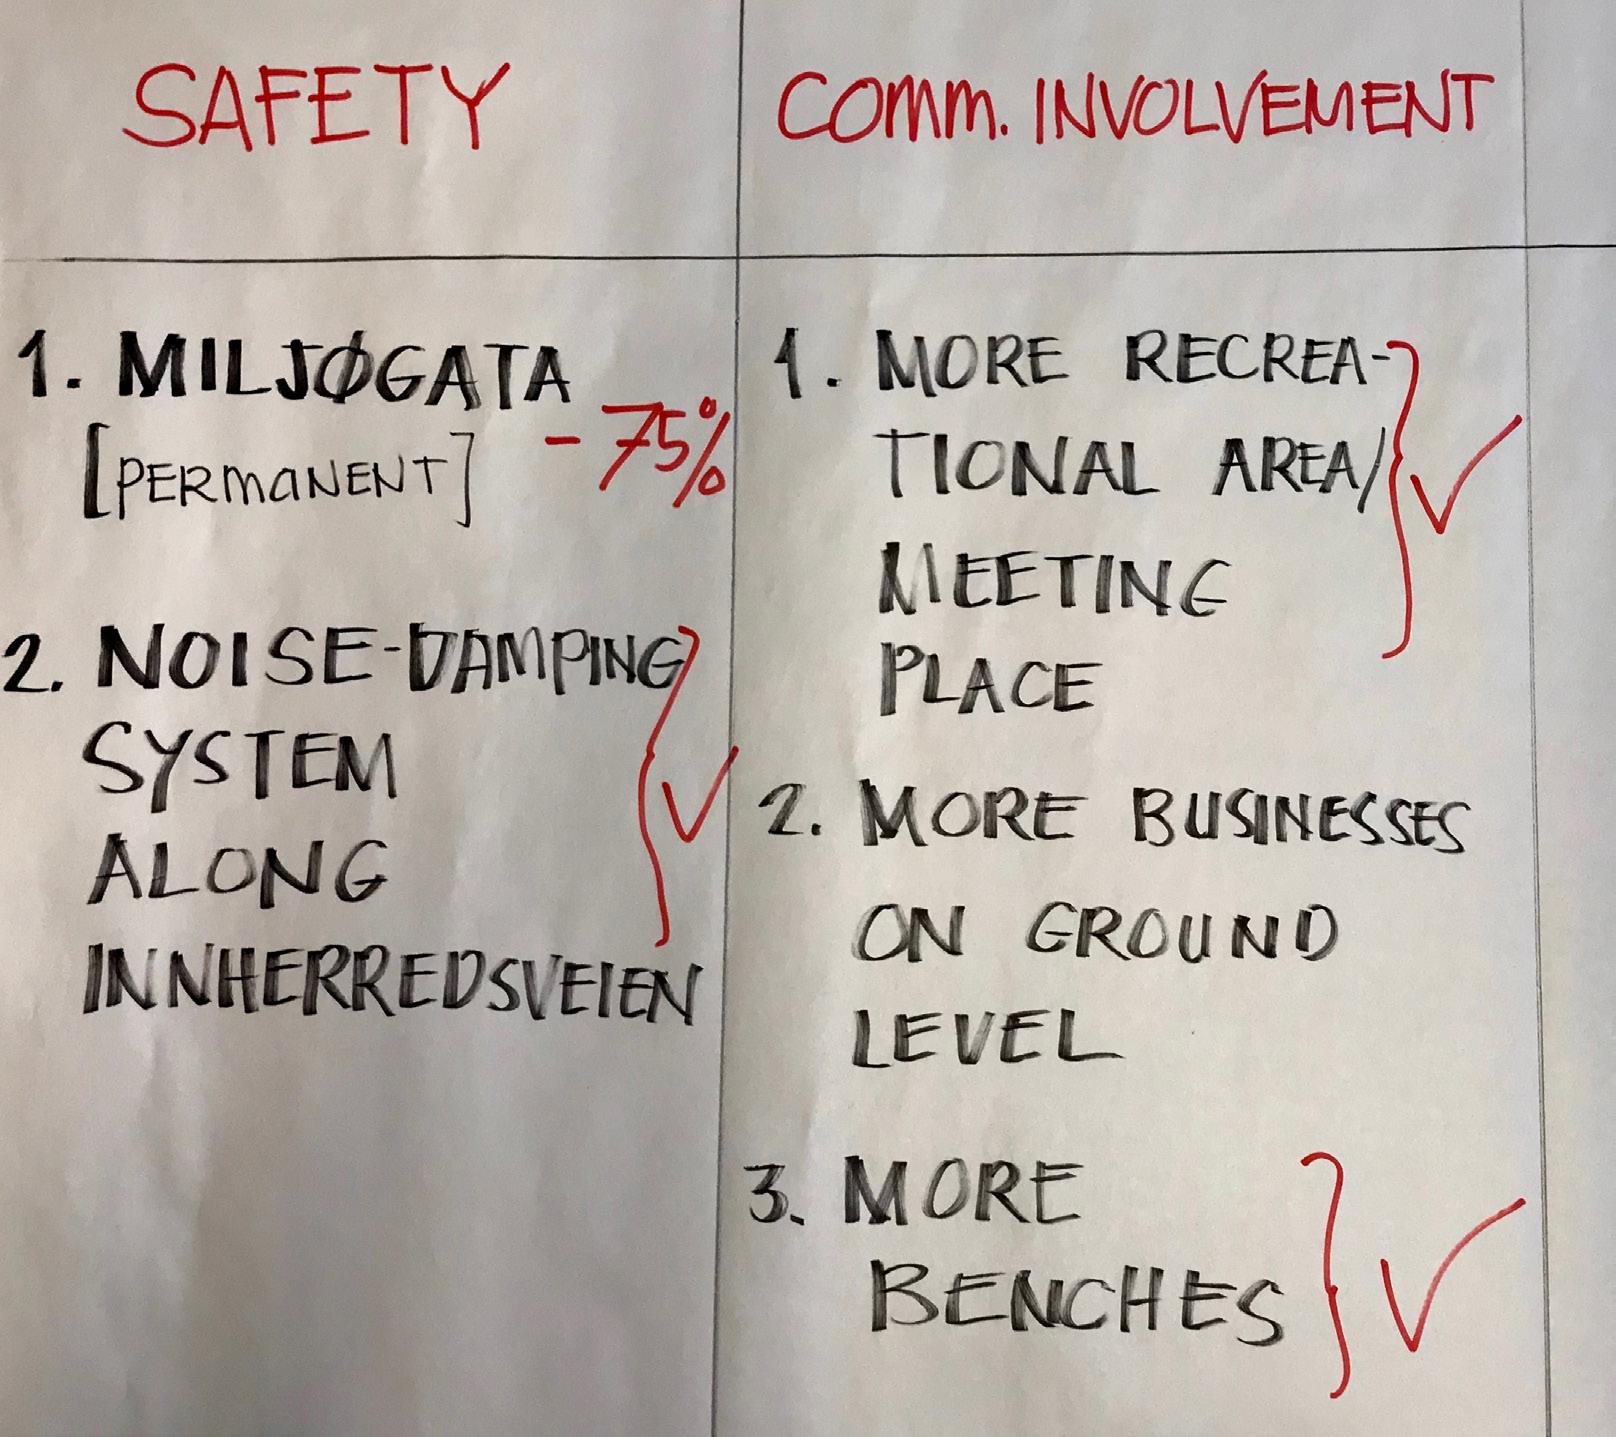 SAFETY
1. MILJØGATA
[PERMANENT]
- 75%
2. NOISE-DAMPING
SYSTEM
ALONG
INNHERREDSVEIEN
COMM. INVOLVEMENT
1. MORE RECREA-
TIONAL AREA/
MEETING
PLACE
2. MORE BUSINESSES
ON GROUND
LEVEL
3. MORE
BENCHES